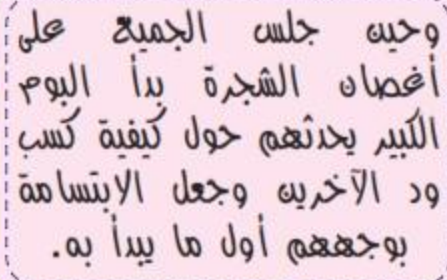 وحين جلس الجميع على
أغصان الشجرة بدأ البوم
الكبير يحدثهم حول كيفية كسب
ود الآخرين وجعل الابتسامة
بوجههم أول ما يبدأ به.